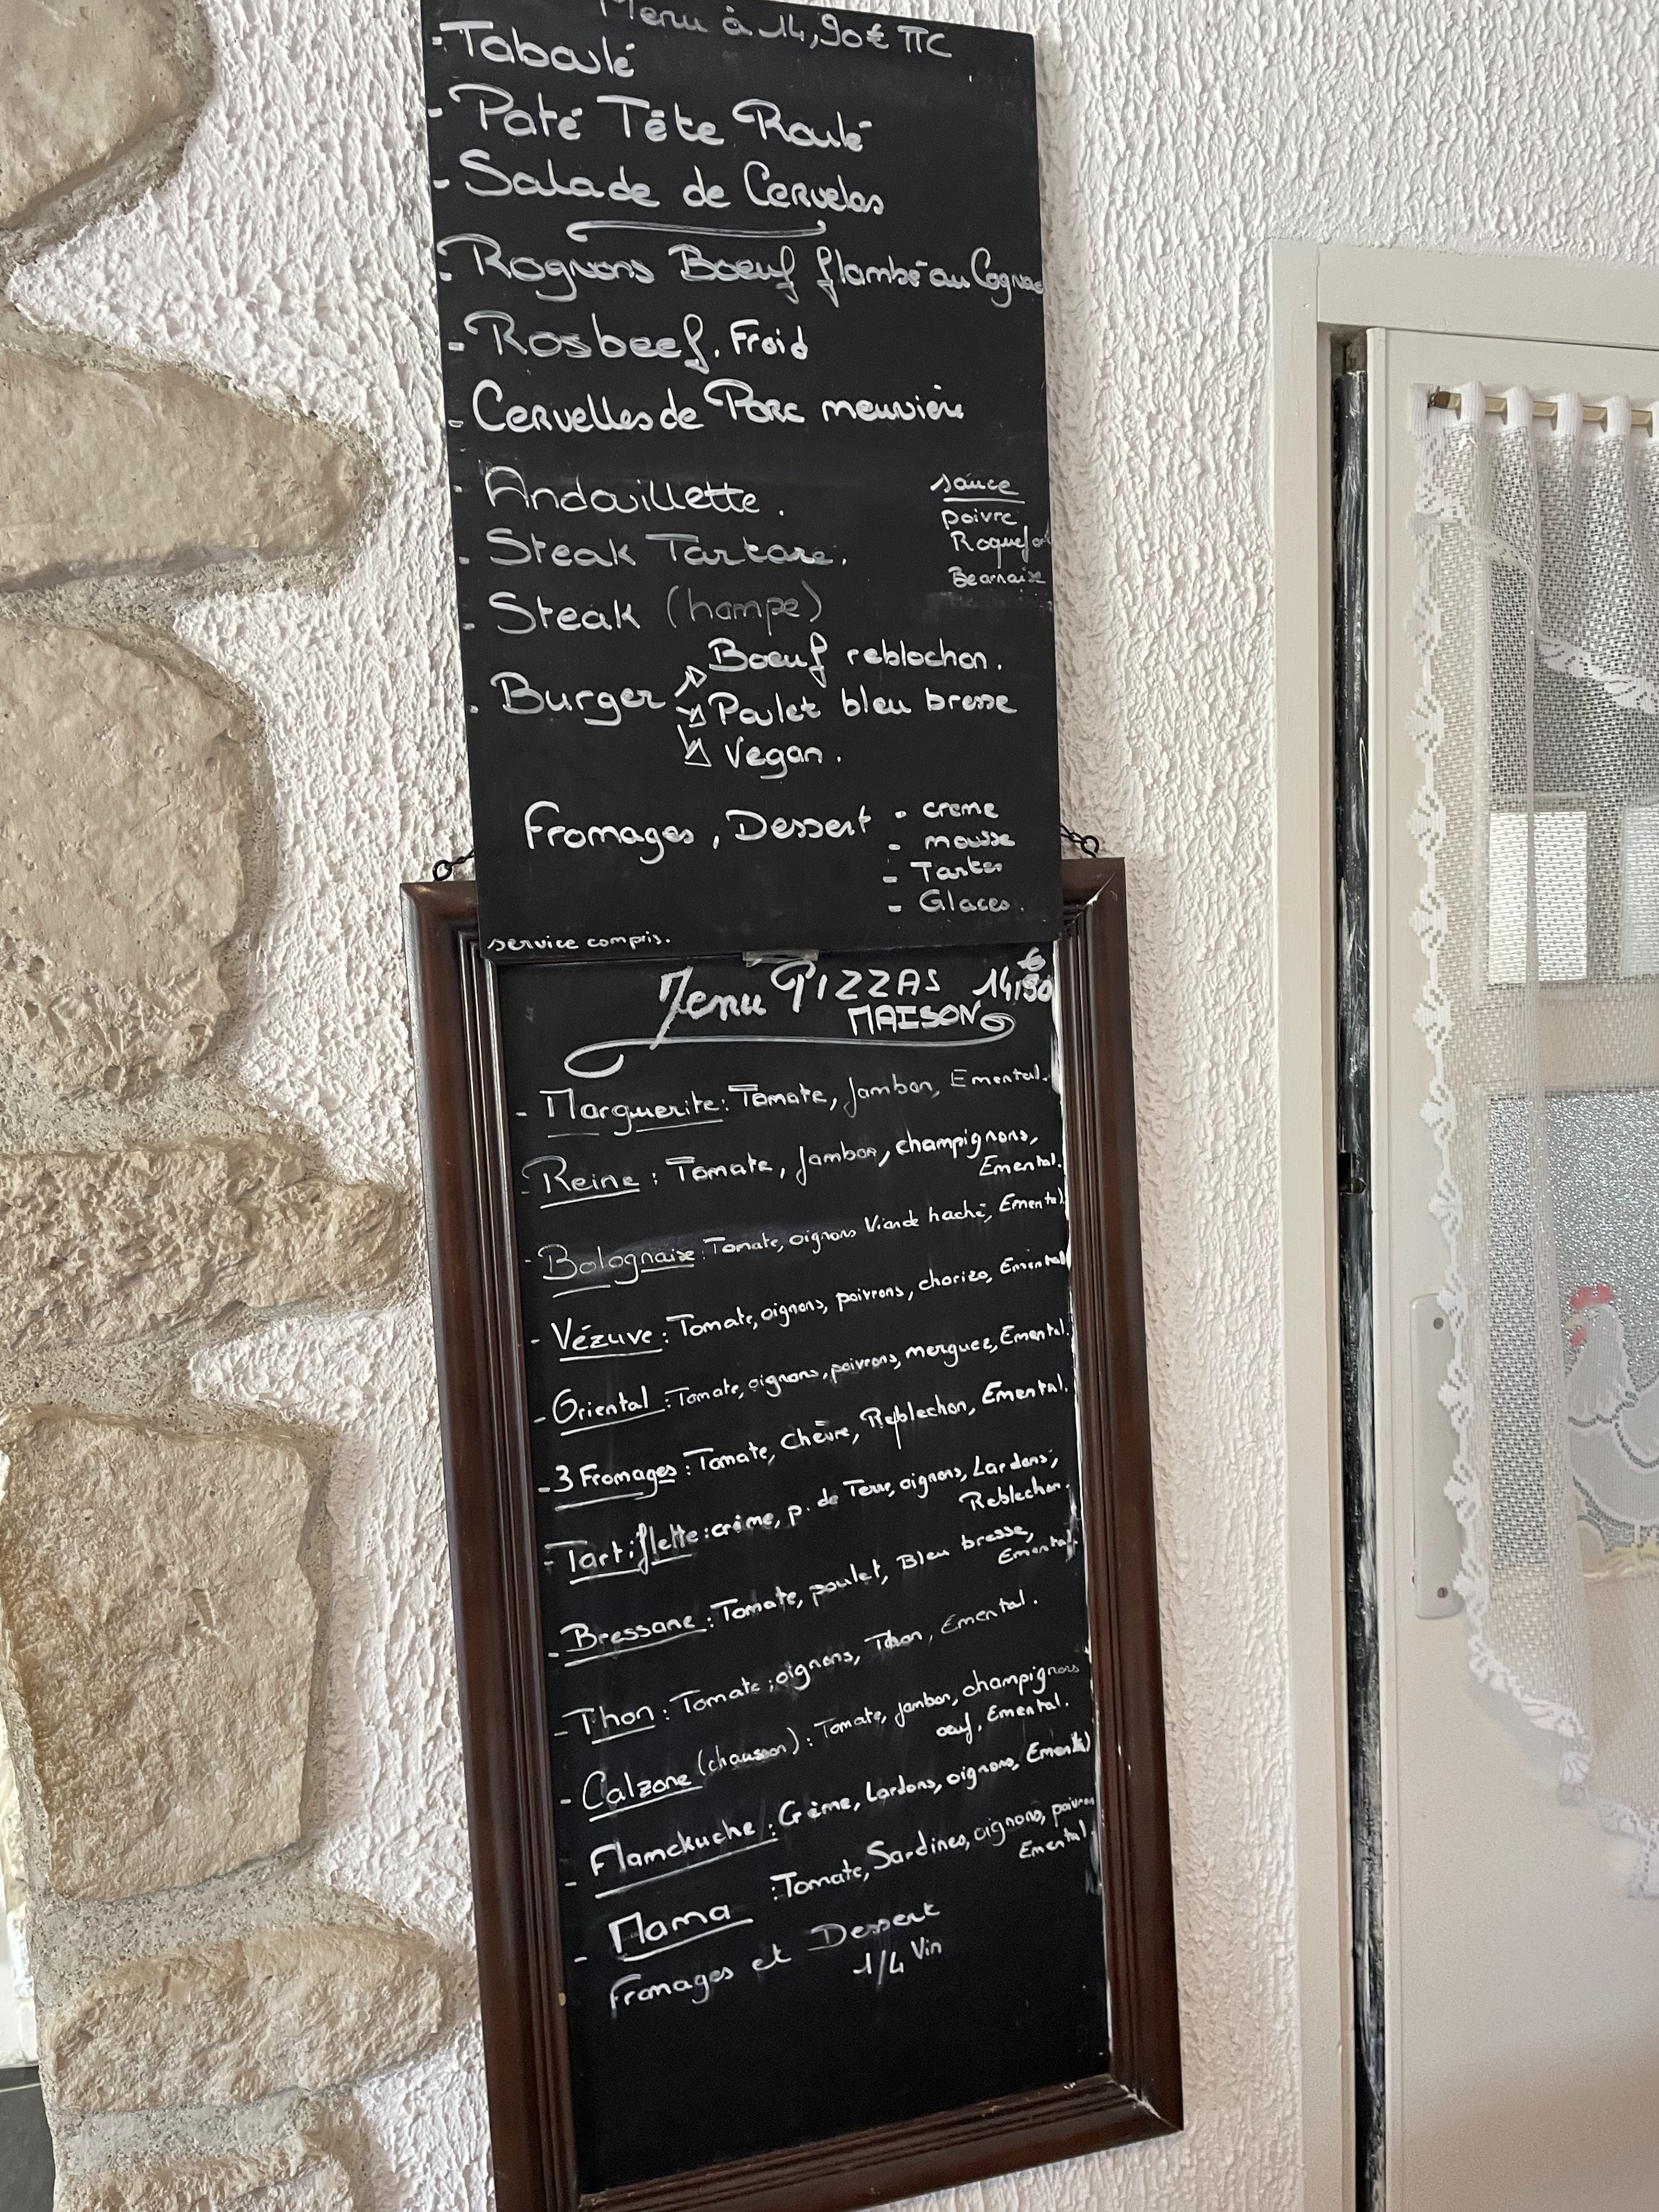 Menu à 14,90€ TTC
- Taboulé
- Paté Tête Roulé
- Salade de Cervelas
- Rognons Boeuf flambé au Cognac
- Rosbeef. Froid
- Cervelles de Porc meunière
- Andouillette.
sauce
poivre
Roquefort
Bearnaise
- Steak Tartare.
- Steak (hampe)
- Burger
Boeuf reblochon.
Poulet bleu bresse
Vegan.
Fromages, Dessert
- creme
- mousse
- Tartes
- Glaces.
service compris.
Menu PIZZAS 14,90 €
MAISON
- Marguerite: Tomate, Jambon, Emental.
- Reine : Tomate, Jambon, champignons,
Emental.
- Bolognaise: Tomate, oignons Viande haché, Emental
- Vézuve: Tomate, oignons, poivrons, chorizo, Emental
- Oriental: Tomate, oignons, poivrons, merguez, Emental.
- 3 Fromages: Tomate, Chèvre, Reblechon, Emental.
- Tartiflette: crème, p. de Terre, oignons, Lardons,
Reblechon.
- Bressane: Tomate, poulet, Bleu bresse,
Emental.
- Thon: Tomate, oignons, Thon, Emental.
- Calzone (chausson): Tomate, jambon, champignons
oeuf, Emental.
- Flamckuche: Crème, Lardons, oignons, Emental
- Mama : Tomate, Sardines, oignons, poivrons
Emental
Fromages et Dessert
1/4 Vin